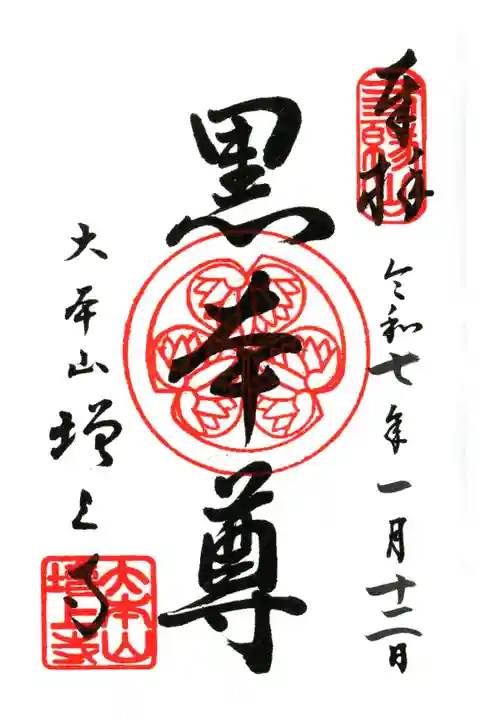 奉拝
令和七年一月十二日
黒本尊
大本山増上寺
三縁山
大本山
増上寺